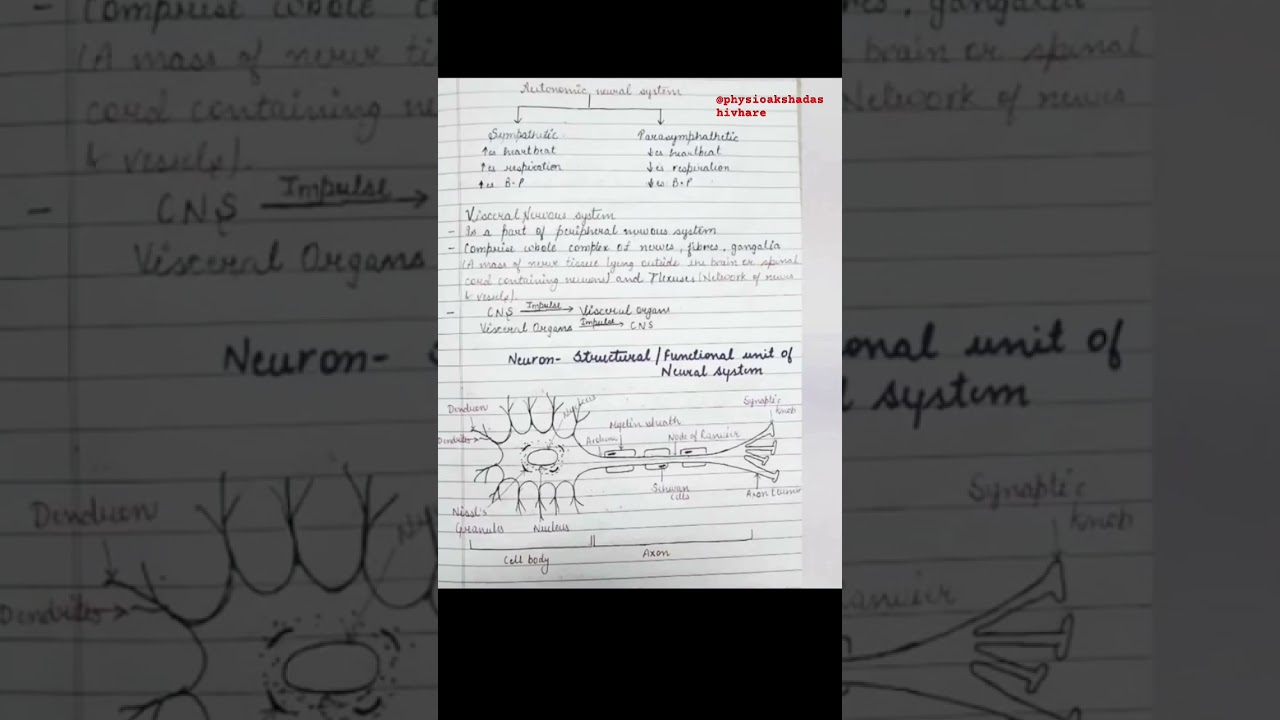 Autonomic neural system
@physioakshadas
hivhare
Sympathetic Parasymphathetic
↑es heartbeat ↓es heartbeat
↑es respiration ↓es respiration
↑es B.P ↓es B.P
Visceral Nervous system
- Is a part of peripheral nervous system
- Comprise whole complex of nerves, fibres, gangalia
(A mass of nerve tissue lying outside the brain or spinal
cord containing neurons) and Plexuses (Network of nerves
& vessels).
- CNS Impulse → Visceral Organs
Visceral Organs Impulse → CNS
Neuron- Structural/Functional unit of
Neural system
Synaptic
knob
Myelin sheath
Node of Ranvier
Dendrites
Schwan
Axon
Nissl's
Granules Nucleus
Cell body Axon